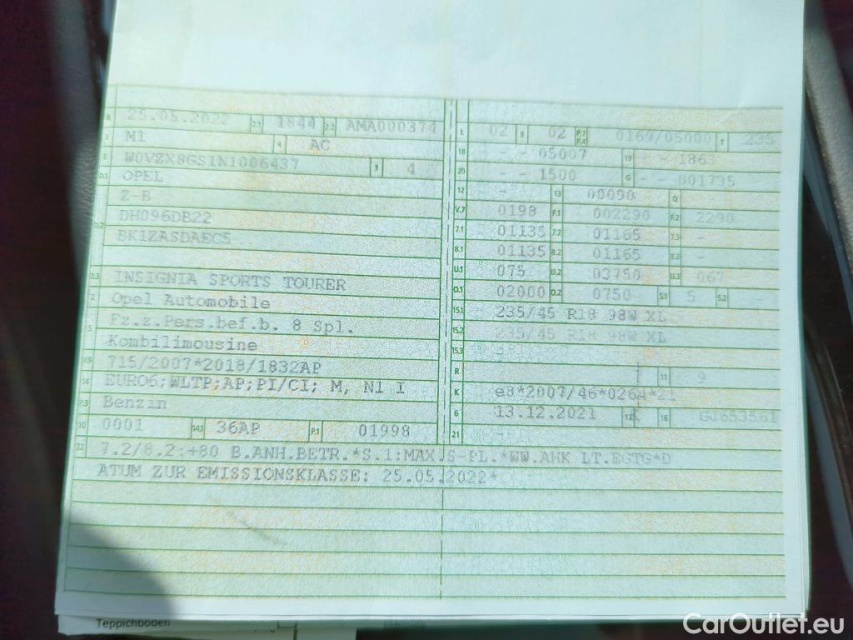 B 25.05.2022 2.1 1844 2.2 AMA000374 L 02 9 02 P.2 P.4 0169/05000 T 235
J M1 4 AC 18 - - 05007 19 - - 1863
E W0VZX8GS1N1006437 3 4 20 - - 1500 G - - 001735
D.1 OPEL 12 - 13 00090 Q -
Z-B V.7 0198 F.1 002290 F.2 2290
D.2 DH096DB22 7.1 01135 7.2 01165 7.3 -
BK1ZASDAEC5 8.1 01135 8.2 01165 8.3 -
U.1 075 U.2 03750 U.3 067
D.3 INSIGNIA SPORTS TOURER O.1 02000 O.2 0750 S.1 5 S.2 -
2 Opel Automobile 15.1 235/45 R18 98W XL
5 Fz.z.Pers.bef.b. 8 Spl. 15.2 235/45 R18 98W XL
Kombilimousine 15.3 -
V.9 715/2007*2018/1832AP R 11 9
14 EURO6;WLTP;AP;PI/CI; M, N1 I K e8*2007/46*0264*21
P.3 Benzin 6 13.12.2021 17 K 16 GJ653561
10 0001 14.1 36AP P.1 01998 21 -
22 7.2/8.2:+80 B.ANH.BETR.*S.1:MAX.5-PL.*WW.AHK LT.EGTG*D
ATUM ZUR EMISSIONSKLASSE: 25.05.2022*
Teppichboden
CarOutlet.eu